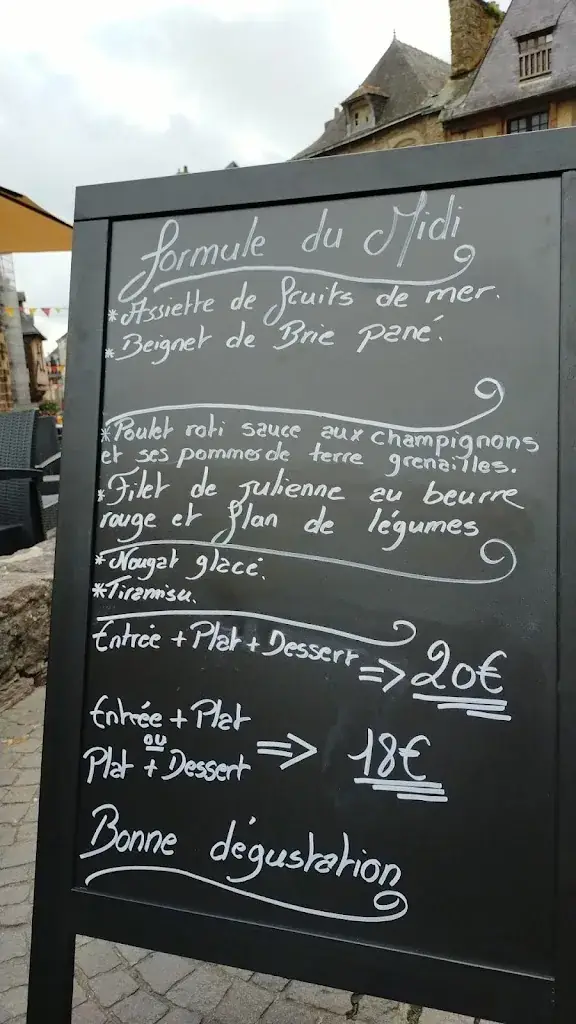 Formule du Midi
*Assiette de fruits de mer.
*Beignet de Brie pané.
*Poulet roti sauce aux champignons
et ses pommes de terre grenailles.
*Filet de julienne au beurre
rouge et flan de légumes
*Nougat glacé.
*Tiramisu.
Entrée + Plat + Dessert => 20€
Entrée + Plat
ou
Plat + Dessert => 18€
Bonne dégustation